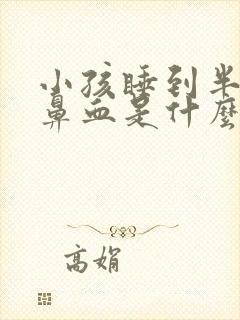 小孩睡到半
鼻血是什麼
高娟